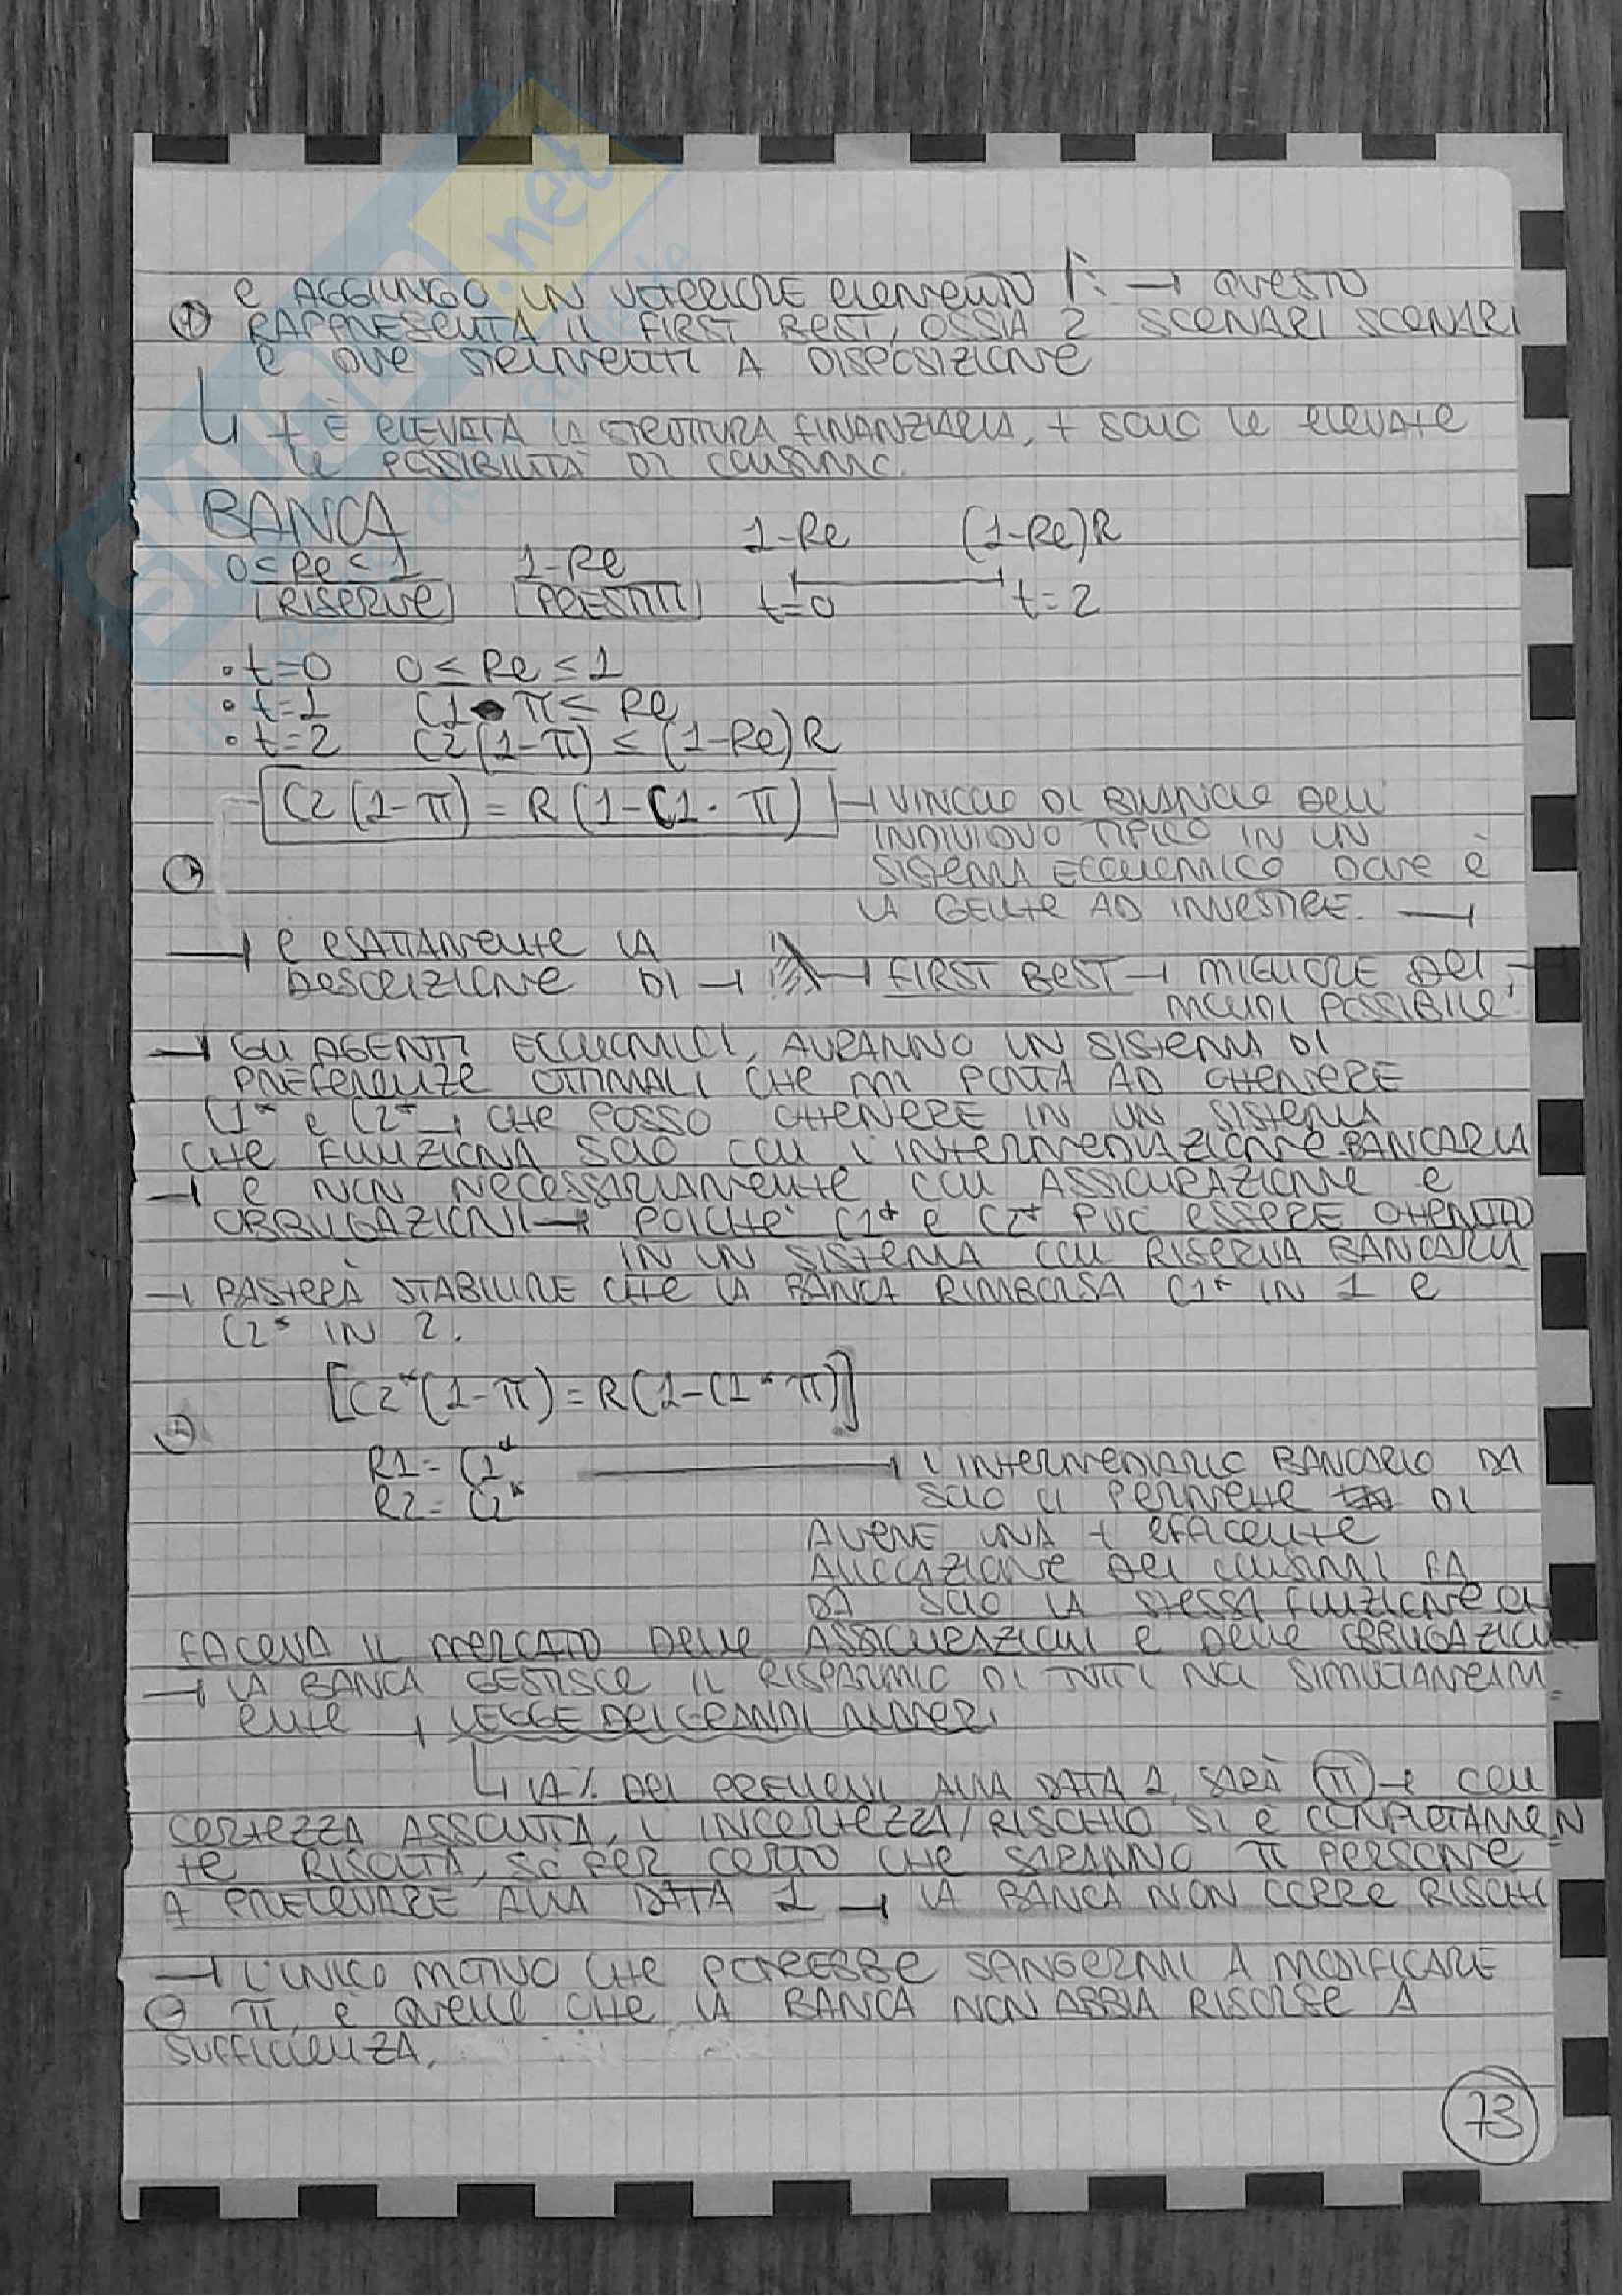 e AGGIUNGO UN ULTERIORE elemento → QUESTO
① RAPPRESENTA IL FIRST BEST, OSSIA 2 SCENARI SCENARI
e DUE STRUMENTI A DISPOSIZIONE
↳ + È ELEVATA LA STRUTTURA FINANZIARIA, + SONO le elevate
le POSSIBILITÀ DI CONSUMO.
BANCA
0 ≤ Re ≤ 1 1-Re 1-Re (1-Re)R
RISERVE PRESTITI t=0 t=2
• t=0 0 ≤ Re ≤ 1
• t=1 C1 • π ≤ Re
• t=2 C2(1-π) ≤ (1-Re)R
C2(1-π) = R(1-C1 · π) → VINCOLO DI BILANCIO DELL'
INDIVIDUO TIPICO IN UN
SISTEMA ECONOMICO DOVE È
LA GENTE AD INVESTIRE. →
→ È ESATTAMENTE LA
DESCRIZIONE DI → → FIRST BEST → MIGLIORE DEI
MONDI POSSIBILE
→ GLI AGENTI ECONOMICI, AVRANNO UN SISTEMA DI
PREFERENZE OTTIMALI CHE MI PORTA AD OTTENERE
C1* e C2* → CHE POSSO OTTENERE IN UN SISTEMA
CHE FUNZIONA SOLO CON L'INTERMEDIAZIONE BANCARIA
→ e NON NECESSARIAMENTE CON ASSICURAZIONE e
OBBLIGAZIONI → POICHÉ C1* e C2* PUÒ ESSERE OTTENUTO
IN UN SISTEMA CON RISERVA BANCARIA
→ BASTERÀ STABILIRE CHE LA BANCA RIMBORSA C1* IN 1 e
C2* IN 2.
[C2*(1-π) = R(1-C1* π)]
R1 = C1*
R2 = C2*
→ L'INTERMEDIARIO BANCARIO DA
SOLO CI PERMETTE DI
AVERE UNA + EFFICIENTE
ALLOCAZIONE DEI CONSUMI FA
DA SOLO LA STESSA FUNZIONE CH
FACEVA IL MERCATO DELLE ASSICURAZIONI E DELLE OBBLIGAZIONI
→ LA BANCA GESTISCE IL RISPARMIO DI TUTTI NOI SIMULTANEAM=
ENTE → LEGGE DEI GRANDI NUMERI
↳ LA % DEI PRELIEVI ALLA DATA 1 SARÀ π → CON
CERTEZZA ASSOLUTA, L'INCERTEZZA/RISCHIO SI È COMPLETAMEN
TE RISOLTA, SO PER CERTO CHE SARANNO π PERSONE
A PRELEVARE ALLA DATA 1 → LA BANCA NON CORRE RISCHI
→ L'UNICO MOTIVO CHE POTREBBE SPINGERMI A MODIFICARE
π, È QUELLO CHE LA BANCA NON ABBIA RISORSE A
SUFFICIENZA.
73